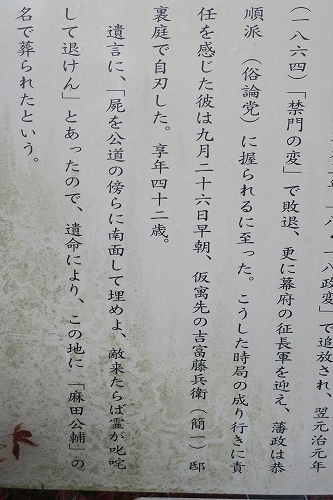 八政変」で追放され、翌元治元年
(一八六四)「禁門の変」で敗退、更に幕府の征長軍を迎え、藩政は恭
順派 (俗論党) に握られるに至った。こうした時局の成り行きに責
任を感じた彼は九月二十六日早朝、仮寓先の吉富藤兵衛(簡一)邸
裏庭で自刃した。享年四十二歳。
遺言に、「屍を公道の傍らに南面して埋めよ、敵来たらば霊が叱咤
して退けん」とあったので、遺命により、この地に「麻田公輔」の
名で葬られたという。